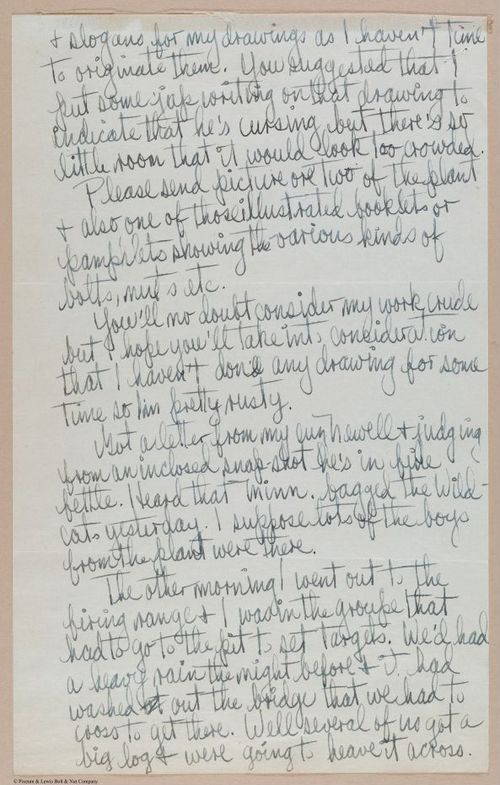 + slogans for my drawings as I haven't time
to originate them. You suggested that I
put some jap writing on that drawing to
indicate that he's cursing but there's so
little room that it would look too crowded.
Please send picture or two of the plant
+ also one of those illustrated booklets or
pamphlets showing the various kinds of
bolts, nuts etc.
You'll no doubt consider my work crude
but I hope you'll take into consideration
that I haven't done any drawing for some
time so I'm pretty rusty.
Got a letter from my Newell + judging
from an inclosed snap-shot he's in fine
fettle. Heard that Minn. bagged the Wild-
cats yesterday. I suppose lots of the boys
from the plant were there.
The other morning I went out to the
firing range + I was in the groupe that
had to go to the pit to set targets. We'd had
a heavy rain the night before + it had
washed out the bridge that we had to
cross to get there. Well several of us got a
big log + were going to heave it across.
© Pioneer & Lewis Bolt & Nut Company